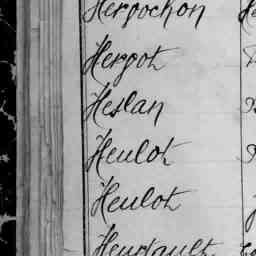 Herpochon
Hergot
Heslan
Heulot
Heulot